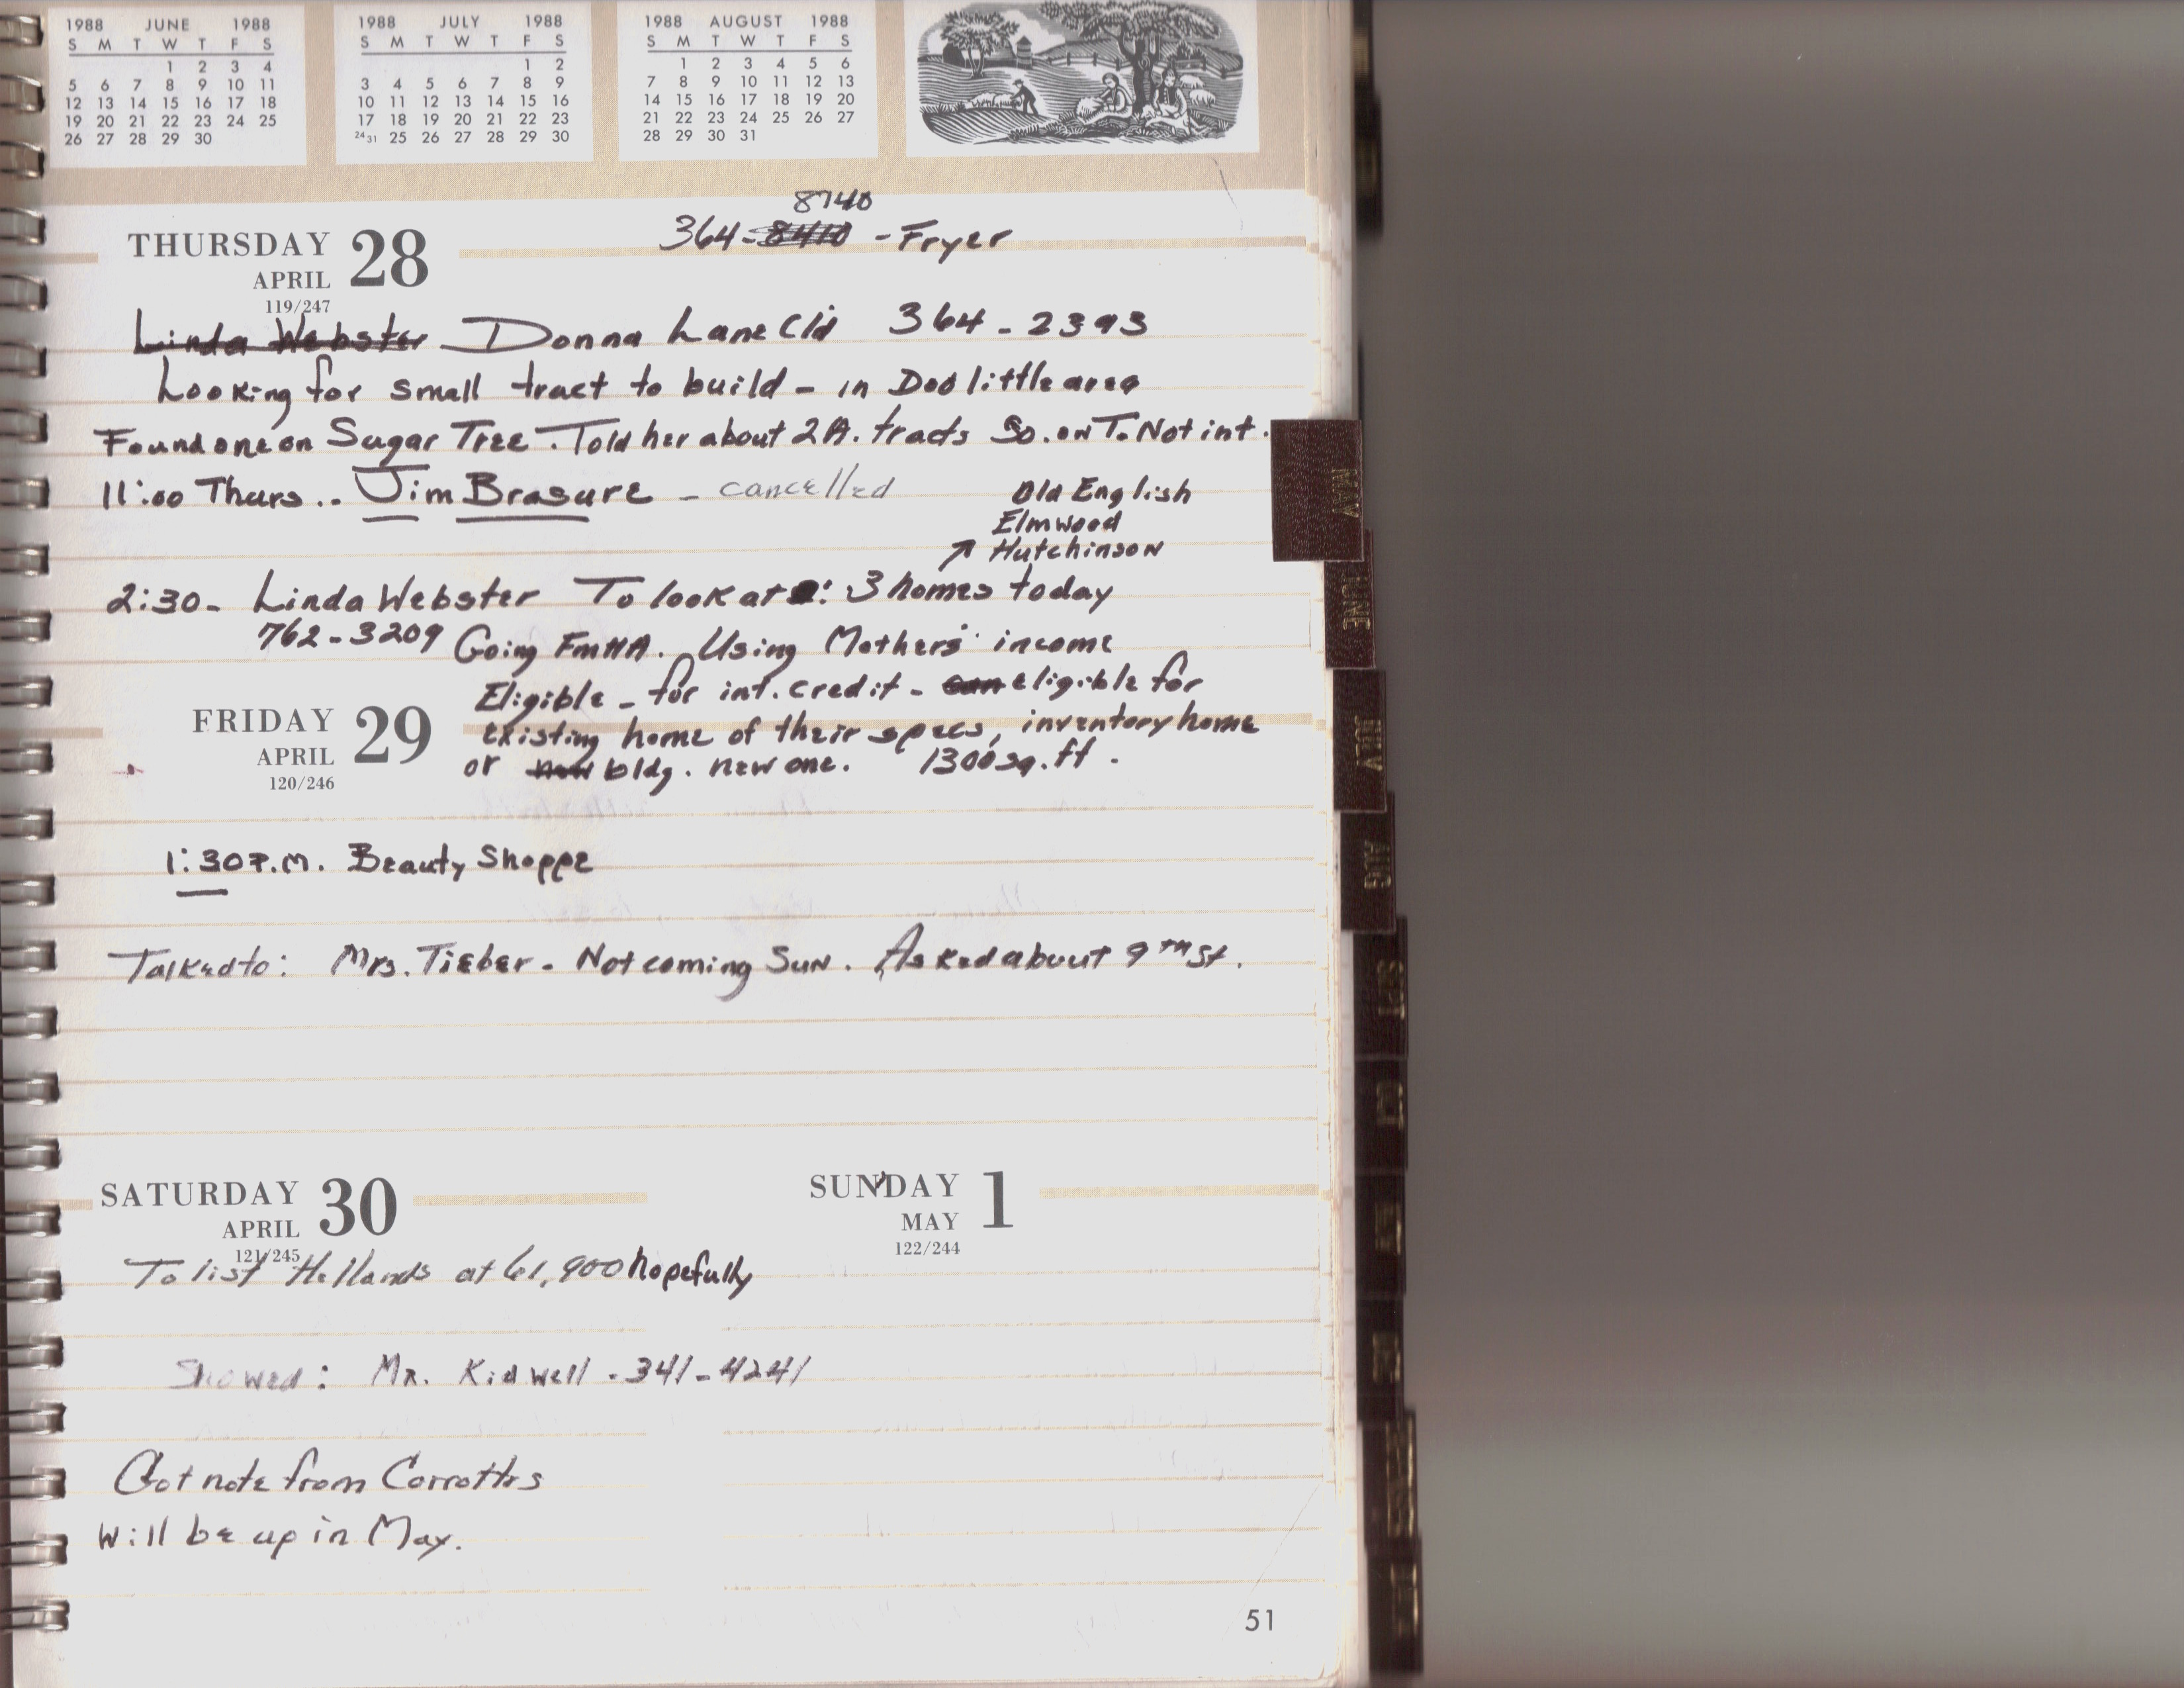 1988 JUNE 1988
S M T W T F S
1 2 3 4
5 6 7 8 9 10 11
12 13 14 15 16 17 18
19 20 21 22 23 24 25
26 27 28 29 30
1988 JULY 1988
S M T W T F S
1 2
3 4 5 6 7 8 9
10 11 12 13 14 15 16
17 18 19 20 21 22 23
24 31 25 26 27 28 29 30
1988 AUGUST 1988
S M T W T F S
1 2 3 4 5 6
7 8 9 10 11 12 13
14 15 16 17 18 19 20
21 22 23 24 25 26 27
28 29 30 31
8740
364-8410 - Fryer
THURSDAY 28
APRIL
119/247
Linda Webster Donna Lane Cld 364-2393
Looking for small tract to build - in Doolittle area
Found one on Sugar Tree. Told her about 2A. tracts So. on T. Not int.
11:00 Thurs.. Jim Brasure - cancelled
Old English
Elmwood
↗ Hutchinson
2:30 - Linda Webster To look at : 3 homes today
762-3209 Going FmHA. Using Mothers' income
Eligible - for int. credit - can eligible for
existing home of their specs, inventory home
or new bldg. new one. 1300 sq. ft.
FRIDAY 29
APRIL
120/246
1:30 P.M. Beauty Shoppe
Talked to: Mrs. Tieber - Not coming Sun. Asked about 9th St.
SATURDAY 30
APRIL
121/245
To list Hellands at 61,900 hopefully
Showed: Mr. Kidwell - 341-4241
Got note from Corrotters
Will be up in May.
SUNDAY 1
MAY
122/244
51
MAY
JUNE
JULY
AUG
SEPT
OCT